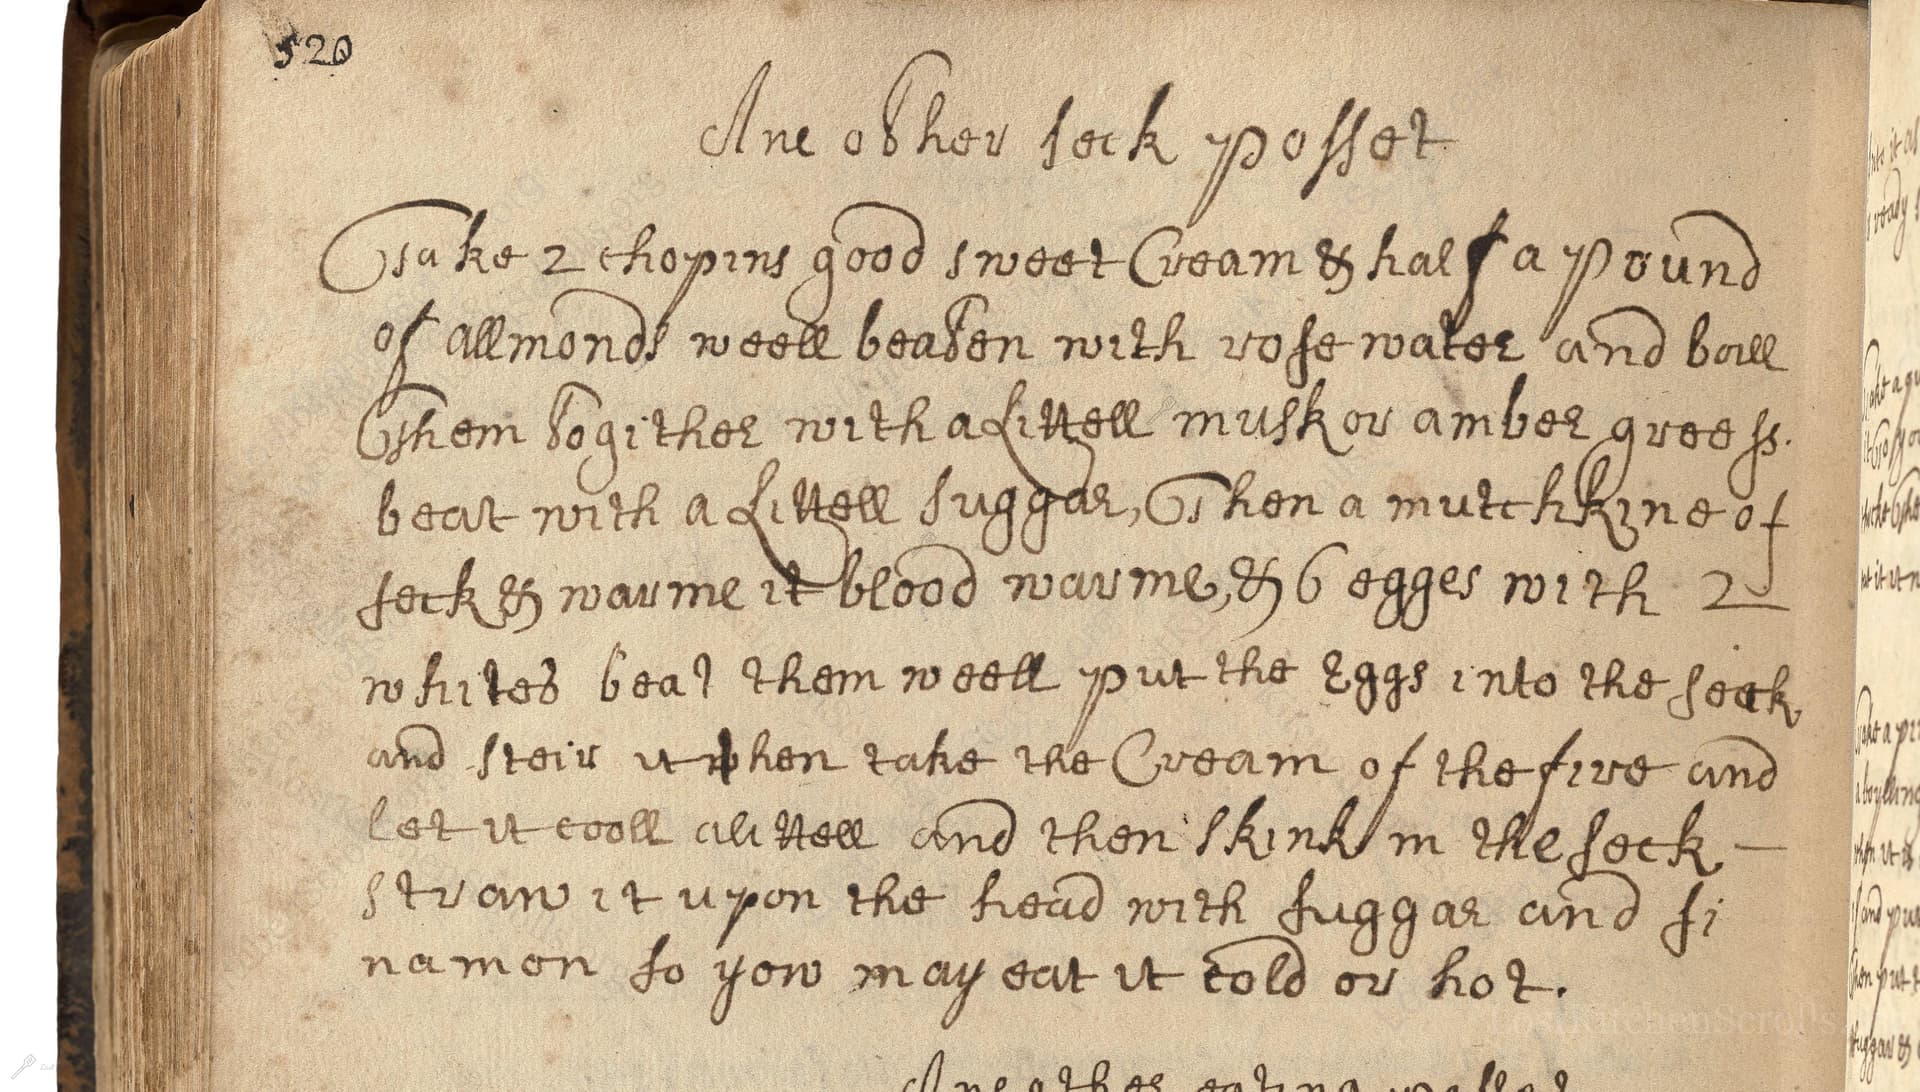 520
Ane other seck posset
Take 2 chopins good sweet Cream & half a pound
of allmonds weell beaten with rose water and boill
Them togither with a Littell musk or amber greess.
beat with a Littell suggar, Then a mutchkine of
seck & warme it blood warme, & 6 egges with 2
whites beat them weell put the Eggs into the seck
and steir it then take the Cream of the fire and
let it cooll a littell and then skink in the seck —
straw it upon the head with suggar and si
namon so yow may eat it cold or hot.
Ane other eating posset
LostKitchenScrolls